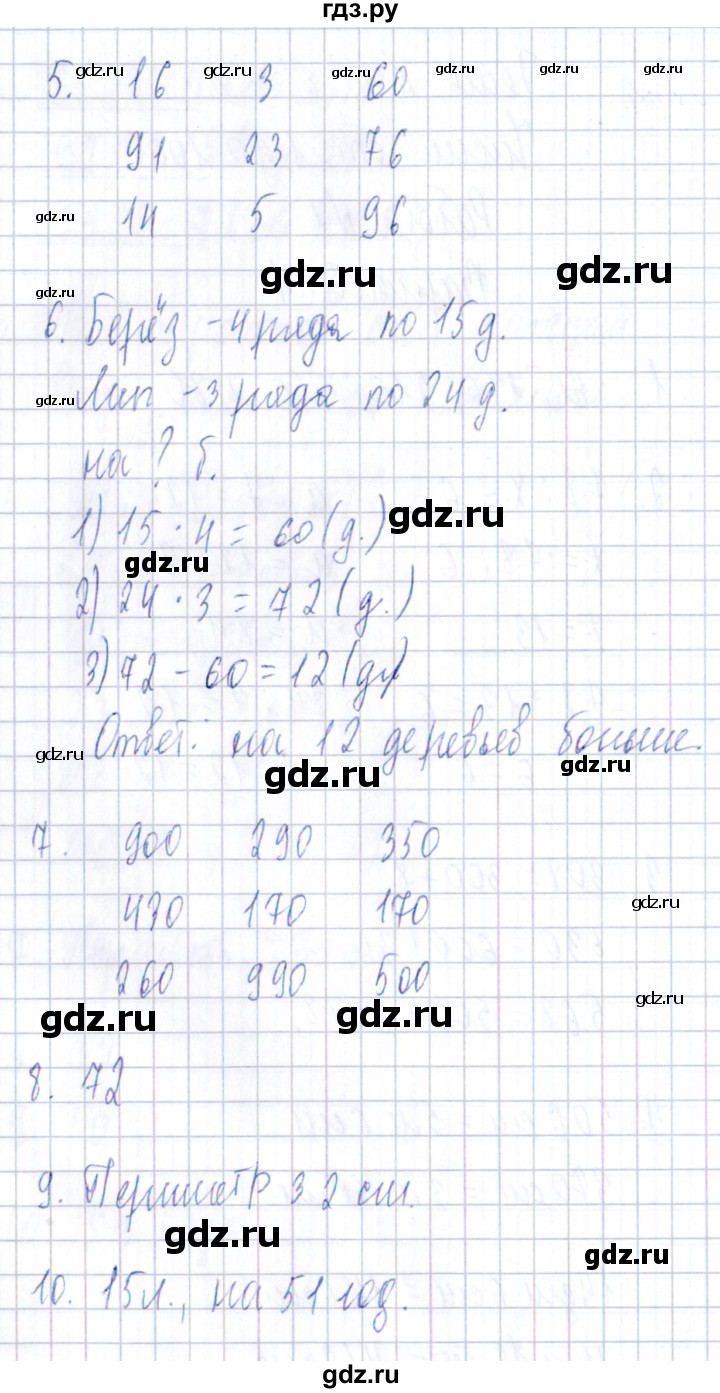 гдз.ру
5. 16 3 60
gdz.ru gdz.ru gdz.ru gdz.ru gdz.ru gdz.ru
91 23 76
14 5 96
gdz.ru
gdz.ru gdz.ru
gdz.ru
6. Берёз - 4 ряда по 15 д.
Лип - 3 ряда по 24 д.
gdz.ru
на ? б.
1) 15 · 4 = 60 (д.)
gdz.ru
gdz.ru
2) 24 · 3 = 72 (д.)
3) 72 - 60 = 12 (д.)
Ответ: на 12 деревьев больше.
gdz.ru gdz.ru gdz.ru
7. 900 290 350
430 170 170
gdz.ru
260 990 500
gdz.ru gdz.ru gdz.ru
8. 72
9. Периметр 32 см.
gdz.ru gdz.ru
10. 15 л., на 51 год.
gdz.ru